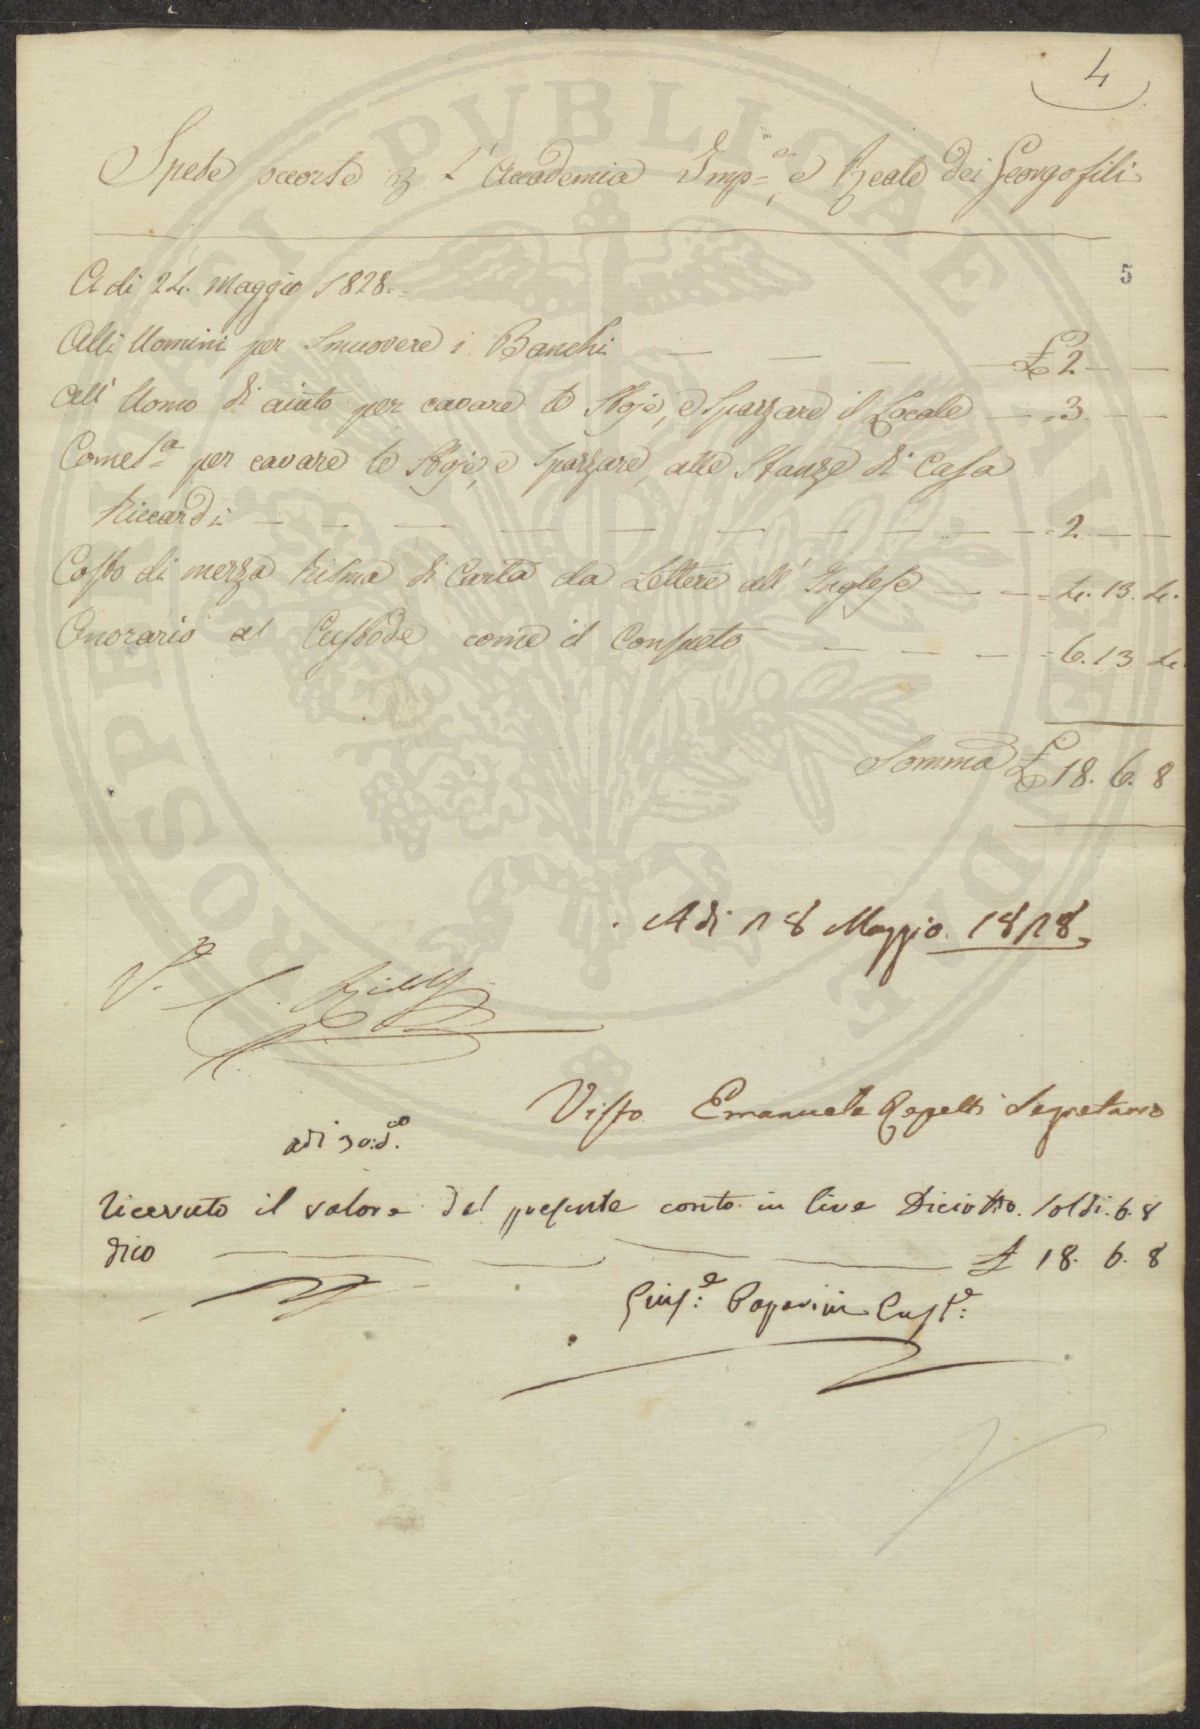 4
Spese occorse p L'Accademia Imp.e e Reale dei Georgofili
5
A di 24. Maggio 1828.
Alli Uomini per Smuovere i Banchi — — — £ 2. — —
All' Uomo di aiuto per cavare le Stoje, e Spazzare il Locale — = 3. — —
Comes.a per cavare le Stoje, e Spazzare, alle Stanze di Casa
Riccardi — — — — — — — — — = 2. — —
Costo di mezza Risma di Carta da Lettere all' Inglese — — = 4. 13. 4.
Onorario al Custode come il Consueto — — — — = 6. 13. 4
Somma £ 18. 6. 8
A di 28 Maggio 1828.
V.o
Visto Emanuele Repetti Segretario
adi 30: d.o
Ricevuto il valore del presente conto in lire Diciotto. soldi. 6. 8
dico — — — £ 18. 6. 8
Gius.e Papavini Cust.e
PUBLICAE
PROSPERITATI